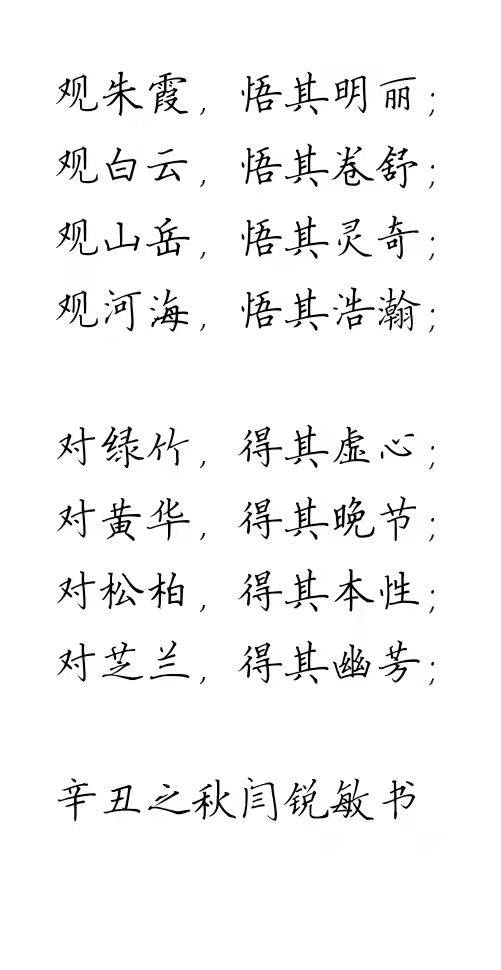 观朱霞，悟其明丽；
观白云，悟其卷舒；
观山岳，悟其灵奇；
观河海，悟其浩瀚；
对绿竹，得其虚心；
对黄华，得其晚节；
对松柏，得其本性；
对芝兰，得其幽芳；
辛丑之秋闫锐敏书